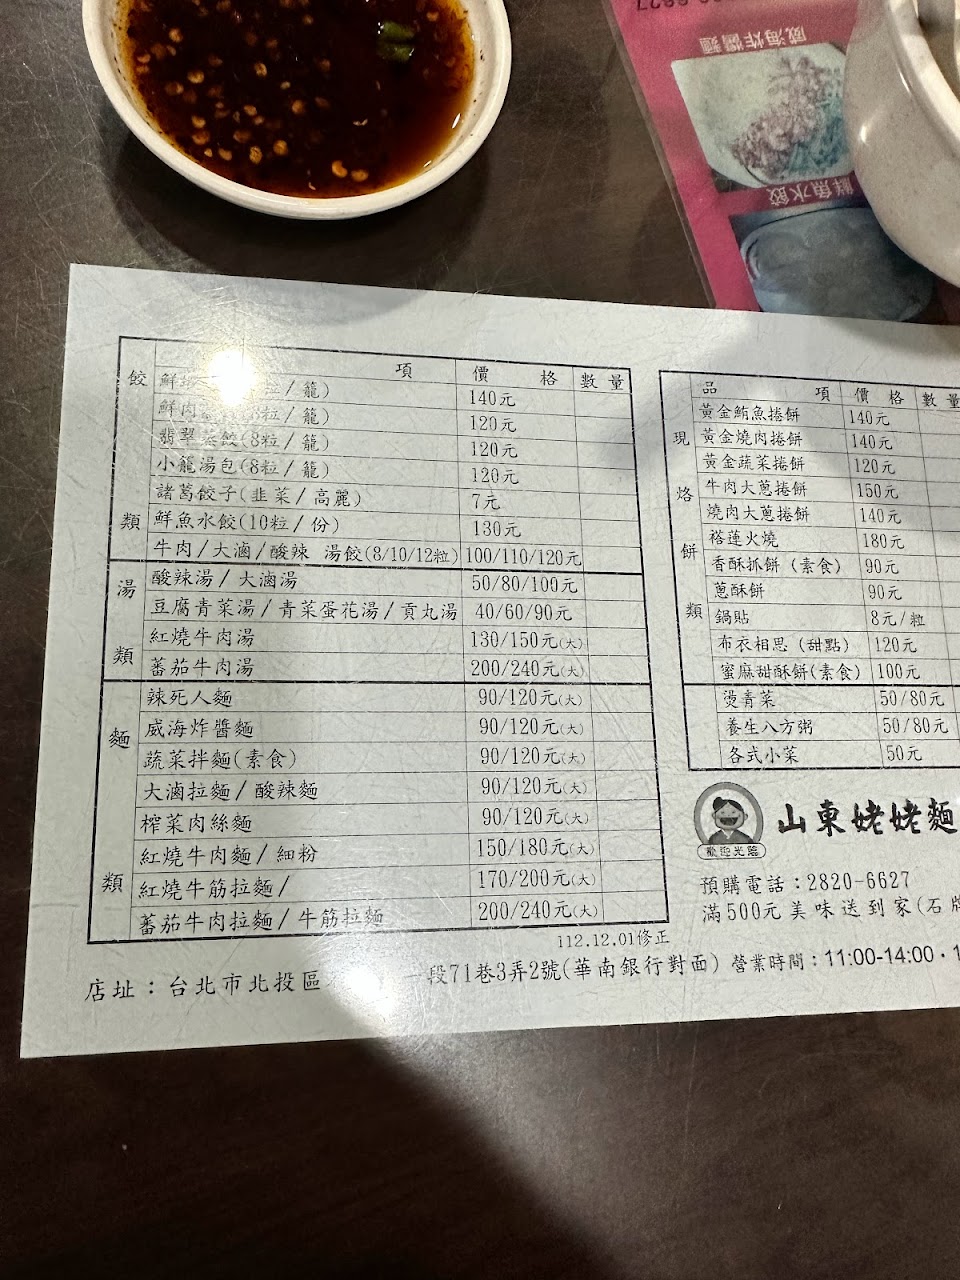 威海炸醬麵
鮮魚水餃
項 價格 數量
餃類
鮮 粒/籠) 140元
鮮肉 粒/籠) 120元
翡翠蒸餃(8粒/籠) 120元
小籠湯包(8粒/籠) 120元
諸葛餃子(韭菜/高麗) 7元
鮮魚水餃(10粒/份) 130元
牛肉/大滷/酸辣 湯餃(8/10/12粒) 100/110/120元
湯類
酸辣湯/大滷湯 50/80/100元
豆腐青菜湯/青菜蛋花湯/貢丸湯 40/60/90元
紅燒牛肉湯 130/150元(大)
蕃茄牛肉湯 200/240元(大)
麵類
辣死人麵 90/120元(大)
威海炸醬麵 90/120元(大)
蔬菜拌麵(素食) 90/120元(大)
大滷拉麵/酸辣麵 90/120元(大)
榨菜肉絲麵 90/120元(大)
紅燒牛肉麵/細粉 150/180元(大)
紅燒牛筋拉麵/ 170/200元(大)
蕃茄牛肉拉麵/牛筋拉麵 200/240元(大)
112.12.01修正
品項 價格 數量
現烙餅類
黃金鮪魚捲餅 140元
黃金燒肉捲餅 140元
黃金蔬菜捲餅 120元
牛肉大蔥捲餅 150元
燒肉大蔥捲餅 140元
褡蓮火燒 180元
香酥抓餅(素食) 90元
蔥酥餅 90元
鍋貼 8元/粒
布衣相思(甜點) 120元
蜜麻甜酥餅(素食) 100元
燙青菜 50/80元
養生八方粥 50/80元
各式小菜 50元
歡迎光臨
山東姥姥麵
預購電話:2820-6627
滿500元美味送到家(石牌
店址:台北市北投區 一段71巷3弄2號(華南銀行對面) 營業時間:11:00-14:00·1